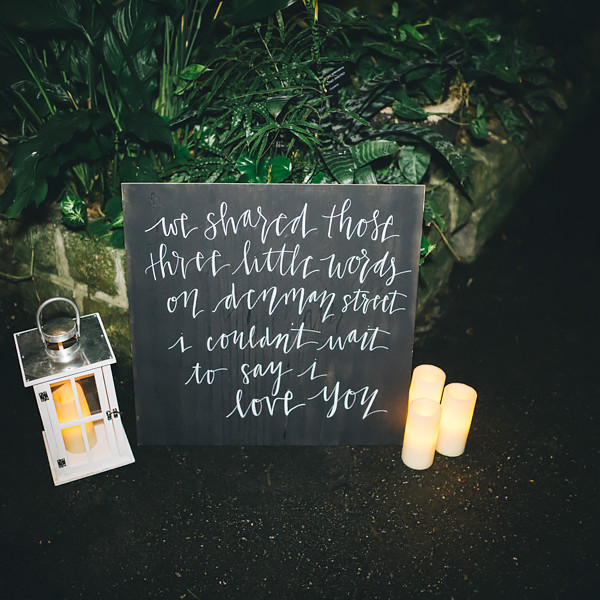 we shared those
three little words
on denman street
i couldn't wait
to say i
love you